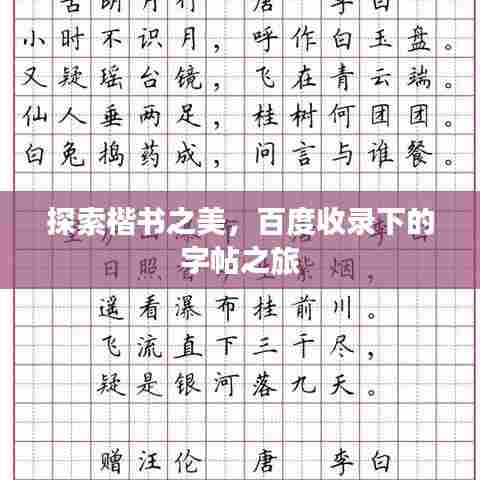 古朗月行 唐 李白
小时不识月，呼作白玉盘。
又疑瑶台镜，飞在青云端。
仙人垂两足，桂树何团团。
白兔捣药成，问言与谁餐。
探索楷书之美，百度收录下的
字帖之旅
日照 紫烟，
遥看瀑布挂前川。
飞流直下三千尺，
疑是银河落九天。
赠汪伦 唐 李白